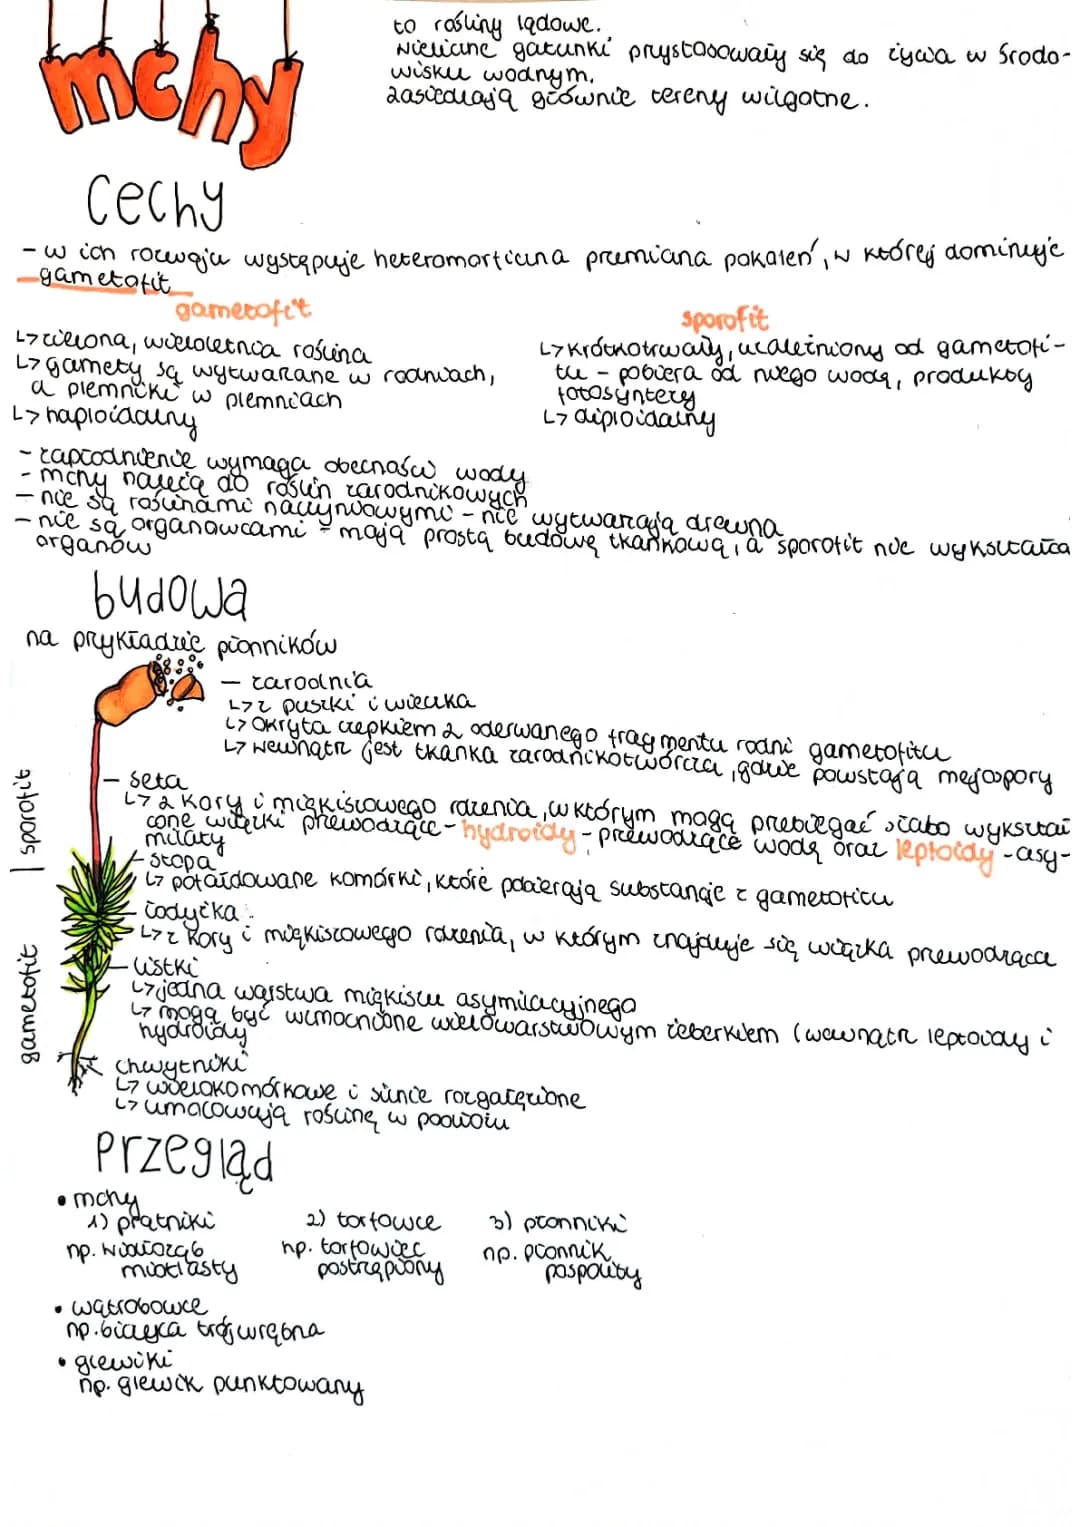 mchy
to rośliny lądowe.
Nieliczne gatunki przystosowały się do życia w środo-
wisku wodnym.
zasiedlają głównie tereny wilgotne.
cechy
- w ich rozwoju występuje heteromorficzna przemiana pokoleń, w której dominuje
gametofit
gametofit
↳ zielona, wieloletnia roślina
↳ gamety są wytwarzane w rodniach,
a plemniki w plemniach
↳ haploidalny
sporofit
↳ krótkotrwały, uzależniony od gametofi-
tu - pobiera od niego wodę, produkty
fotosyntezy
↳ diploidalny
- zapłodnienie wymaga obecności wody
- mchy należą do roślin zarodnikowych
- nie są roślinami naczyniowymi - nie wytwarzają drewna
- nie są organowcami - mają prostą budowę tkankową, a sporofit nie wykształca
organów
budowa
na przykładzie płonników
- zarodnia
↳ z puszki i wieczka
↳ okryta czepkiem z oderwanego fragmentu rodni gametofitu
↳ wewnątrz jest tkanka zarodnikotwórcza, gdzie powstają mejospory
- seta
↳ z kory i miękiszowego rdzenia, w którym mogą przebiegać słabo wykształ
cone wiązki przewodzące - hydroidy - przewodzące wodę oraz leptoidy - asy-
milaty
- stopa
↳ pofałdowane komórki, które pobierają substancje z gametofitu
- łodyżka
↳ z kory i miękiszowego rdzenia, w którym znajduje się wiązka przewodząca
- listki
↳ jedna warstwa miękiszu asymilacyjnego
↳ mogą być wzmocnione wielowarstwowym żeberkiem (wewnątrz leptoidy i
hydroidy
chwytniki
↳ wielokomórkowe i silnie rozgałęzione
↳ umacowują roślinę w podłożu
sporofit
gametofit
przegląd
• mchy
1) prątniki
np. widłoząb
miotlasty
2) torfowce
np. torfowiec
postrzępiony
3) płonniki
np. płonnik
pospolity
• wątrobowce
np. biczyca trójwrębna
• glewiki
np. glewik punktowany